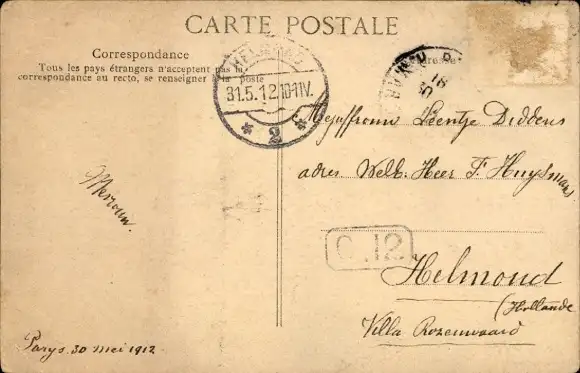 CARTE POSTALE
Correspondance
Tous les pays étrangers n'acceptent pas la
correspondance au recto, se renseigner à la poste
HELMOND
31.5.12.10-11V.
* 2 *
18
30
Mejuffrouw Leentje Diddens
adres Welb. Heer F. Huysmans
C.12
Helmond
(Hollande
Villa Rozenwaard
Parys. 30 Mei 1912